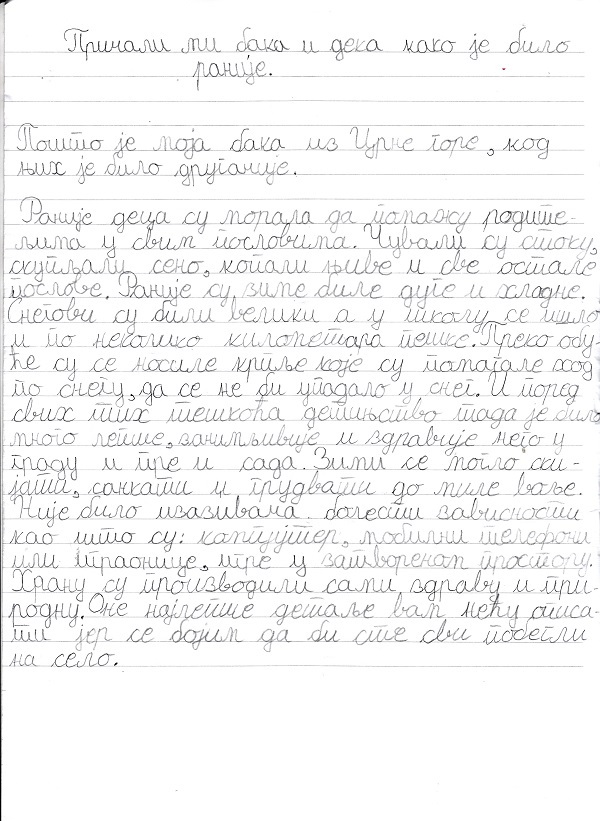 Причали ми бака и дека како је било
раније.
Пошто је моја бака из Црне горе, код
њих је било другачије.
Раније деца су морала да помажу родите-
љима у свим пословима. Чували су стоку,
скупљали сено, копали њиве и све остале
послове. Раније су зиме биле дуге и хладне.
Снегови су били велики а у школу се ишло
и по неколико километара пешке. Преко обу-
ће су се носиле крпље које су помагале ход
по снегу, да се не би упадало у снег. И поред
свих тих тешкоћа детињство тада је било
много лепше, занимљивије и здравије него у
граду и пре и сада. Зими се могло ски-
јати, санкати и грудвати до миле воље.
Није било изазивача болести зависности
као што су: компјутер, мобилни телефони
или играонице, игре у затвореном простору.
Храну су производили сами здраву и при-
родну. Оне најлепше детаље вам нећуописа-
ти јер се бојим да би сте сви побегли
на село.